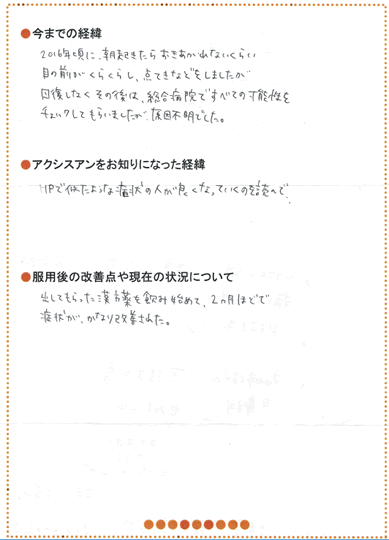 ●今までの経緯
2016年頃に、朝起きたらおきあがれないくらい
目の前がくらくらし、点てきなどをしましたが
回復しなくその後は、総合病院ですべての可能性を
チェックしてもらいましたが、原因不明でした。
●アクシスアンをお知りになった経緯
HPで似たような症状の人が良くなっていくのを読んで、
●服用後の改善点や現在の状況について
出してもらった漢方薬を飲み始めて、2ヵ月ほどで
症状が、かなり改善された。